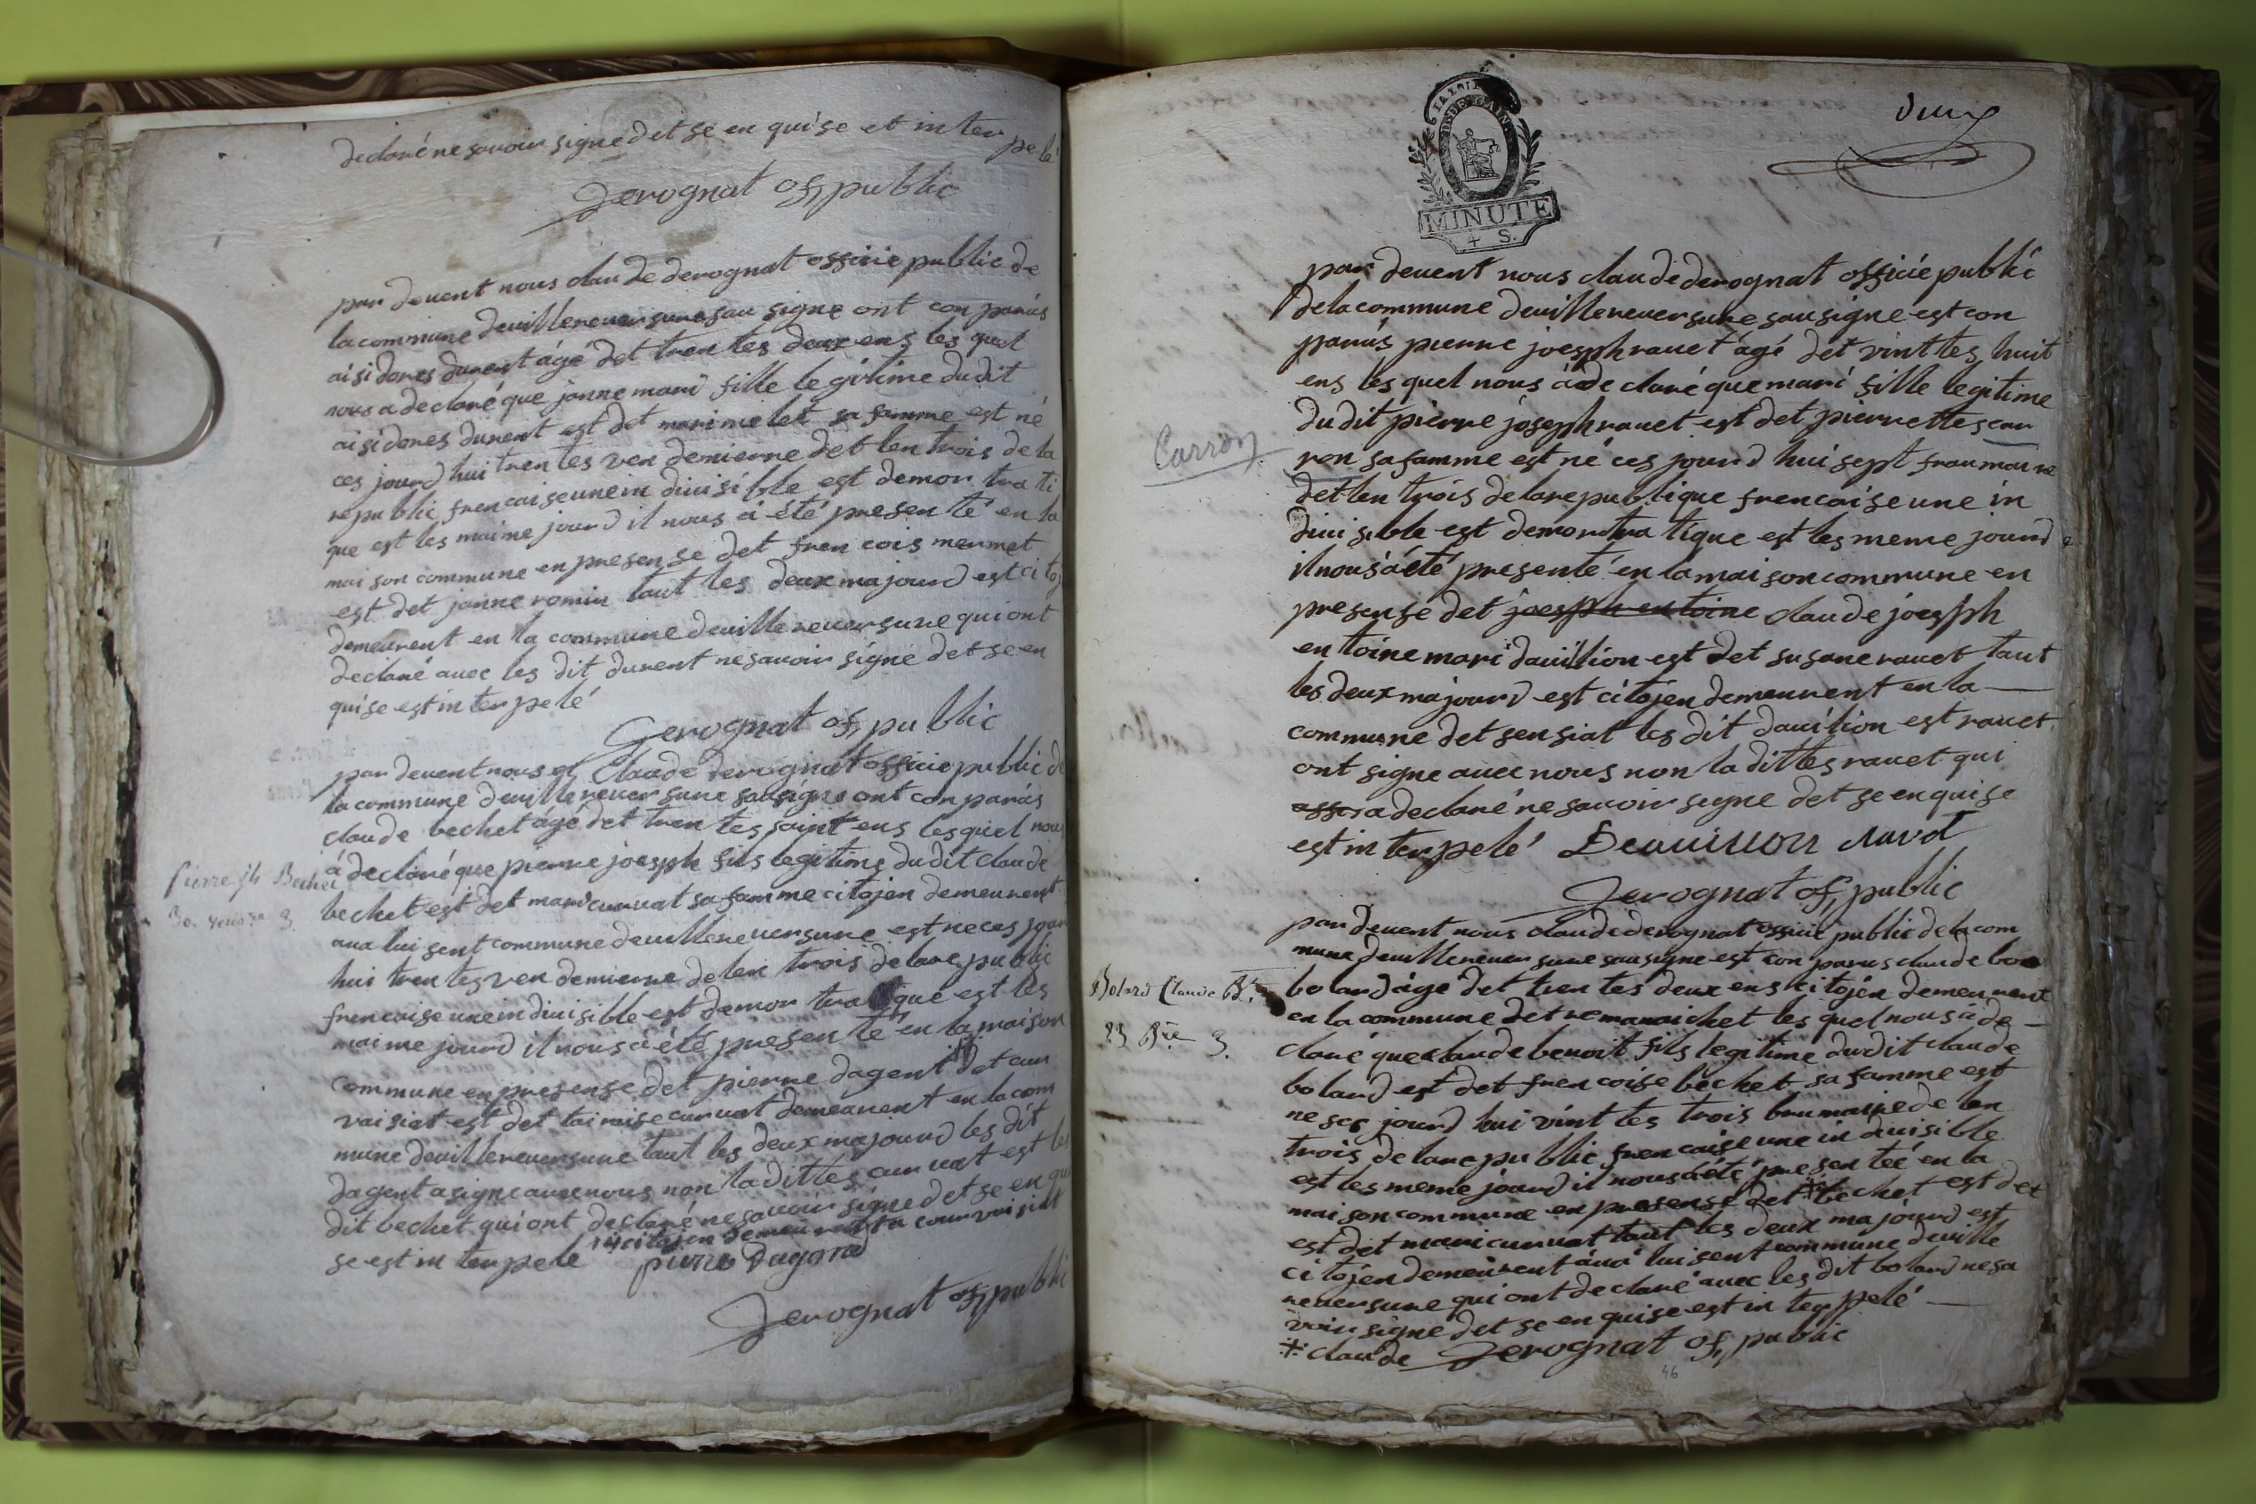 declaré ne savoir signe det se en quise et in ter pe lé
Derognat of, public
par devent nous claude derognat officié public de
la commune devillereversure sau signe ont con parús
aisidores durent âgé det tren tes deux ens les quel
nous a declaré que janne mari fille legitime dudit
aisidores durent est det mari melet sa famme est né
ces jourd hui tren tes ven demierre det len trois de la
re public francaise une in divisible est demon tra ti
que est les maime jourd il nous á été presen té en la
mai son commune en presen se det fren cois mermet
est det janne romin taut les deux majourd est ci toj
demeurent en la commune devillereversure qui ont
declaré avec les dit durent ne savoir signé det se en
quise est in ter pe lé
Derognat of, pu blic
par devent nous Claude derognat officié public de
la commune devillereversure sausigne ont con parús
claude bechet âgé det tren tes saint ens lesquel nous
á declaré que pierre joesph fils legitime dudit claude
Pierre jh Bechet
30. 3.
bechet est det mari curvat sa famme citojen demeurent
aua lui sent commune devillereversure est ne ces jour
hui tren tes ven demierre de len trois de lare public
francaise une in divisible est demon tra tique est les
mai me jourd il nous á été presen té en la maison
commune en presense det pierre dagent det cur
vai siat est det tai raise curvat demeurent en la com
mune devillereversure taut les deux majourd les dit
dagent a signe avec nous non la dittes curvat est les
dit bechet qui ont declaré ne savoir signe det se en qui
se est in ter pe lé citojen demeurent a cour vai siat
pierre Dagand
Derognat of, publi
LA LOI
MINUTE
4 S.
par devent nous claude derognat officié public
de la commune devillereversure sausigne est con
parús pierre joesph ravet âgé det vint tes huit
ens les quel nous á de claré que mari fille legitime
dudit pierre joseph ravet est det pierrettes car
Carron
ron sa famme est né ces jourd hui sept frau mai re
det len trois de lare publique francaise une in
divi sible est demon tra tique est les meme jourd
il nous á été presenté en la mai son commune en
presense det joesph en toine claude joesph
en toine mari davillion est det susane ravet taut
les deux majourd est citojen demeurent en la
commune det sen siat les dit davilion est ravet
ont signe avec nous non la dittes ravet qui
a declaré ne savoir signe det se en quise
est in ter pe lé Deavillion ravet
Derognat of, public
par devent nous claude derognat officié public de la com
mune devillereversure sausigne est con parus claude bo
Bolard Claude Bt.
bo lard âgé det tren tes deux ens citojen demeurent
en la commune det les quel nous á de
23 Bre 3.
claré que claude benoit fils legitime dudit claude
bo lard est det fren coise bechet sa famme est
ne ses jourd hui vint tes trois bru maire de len
trois de lare pu blic francaise une in divisible
est les meme jourd il nous á été pre sen téé en la
mai son commune en presense det * bechet est det
est det mari curvat taut les deux ma jourd est
ci tojen demeurent aúa lui sent commune deville
reversure qui ont de claré avec les dit bo lard ne sa
voir signe det se en quise est in ter pe lé
* claude Derognat of, public
46